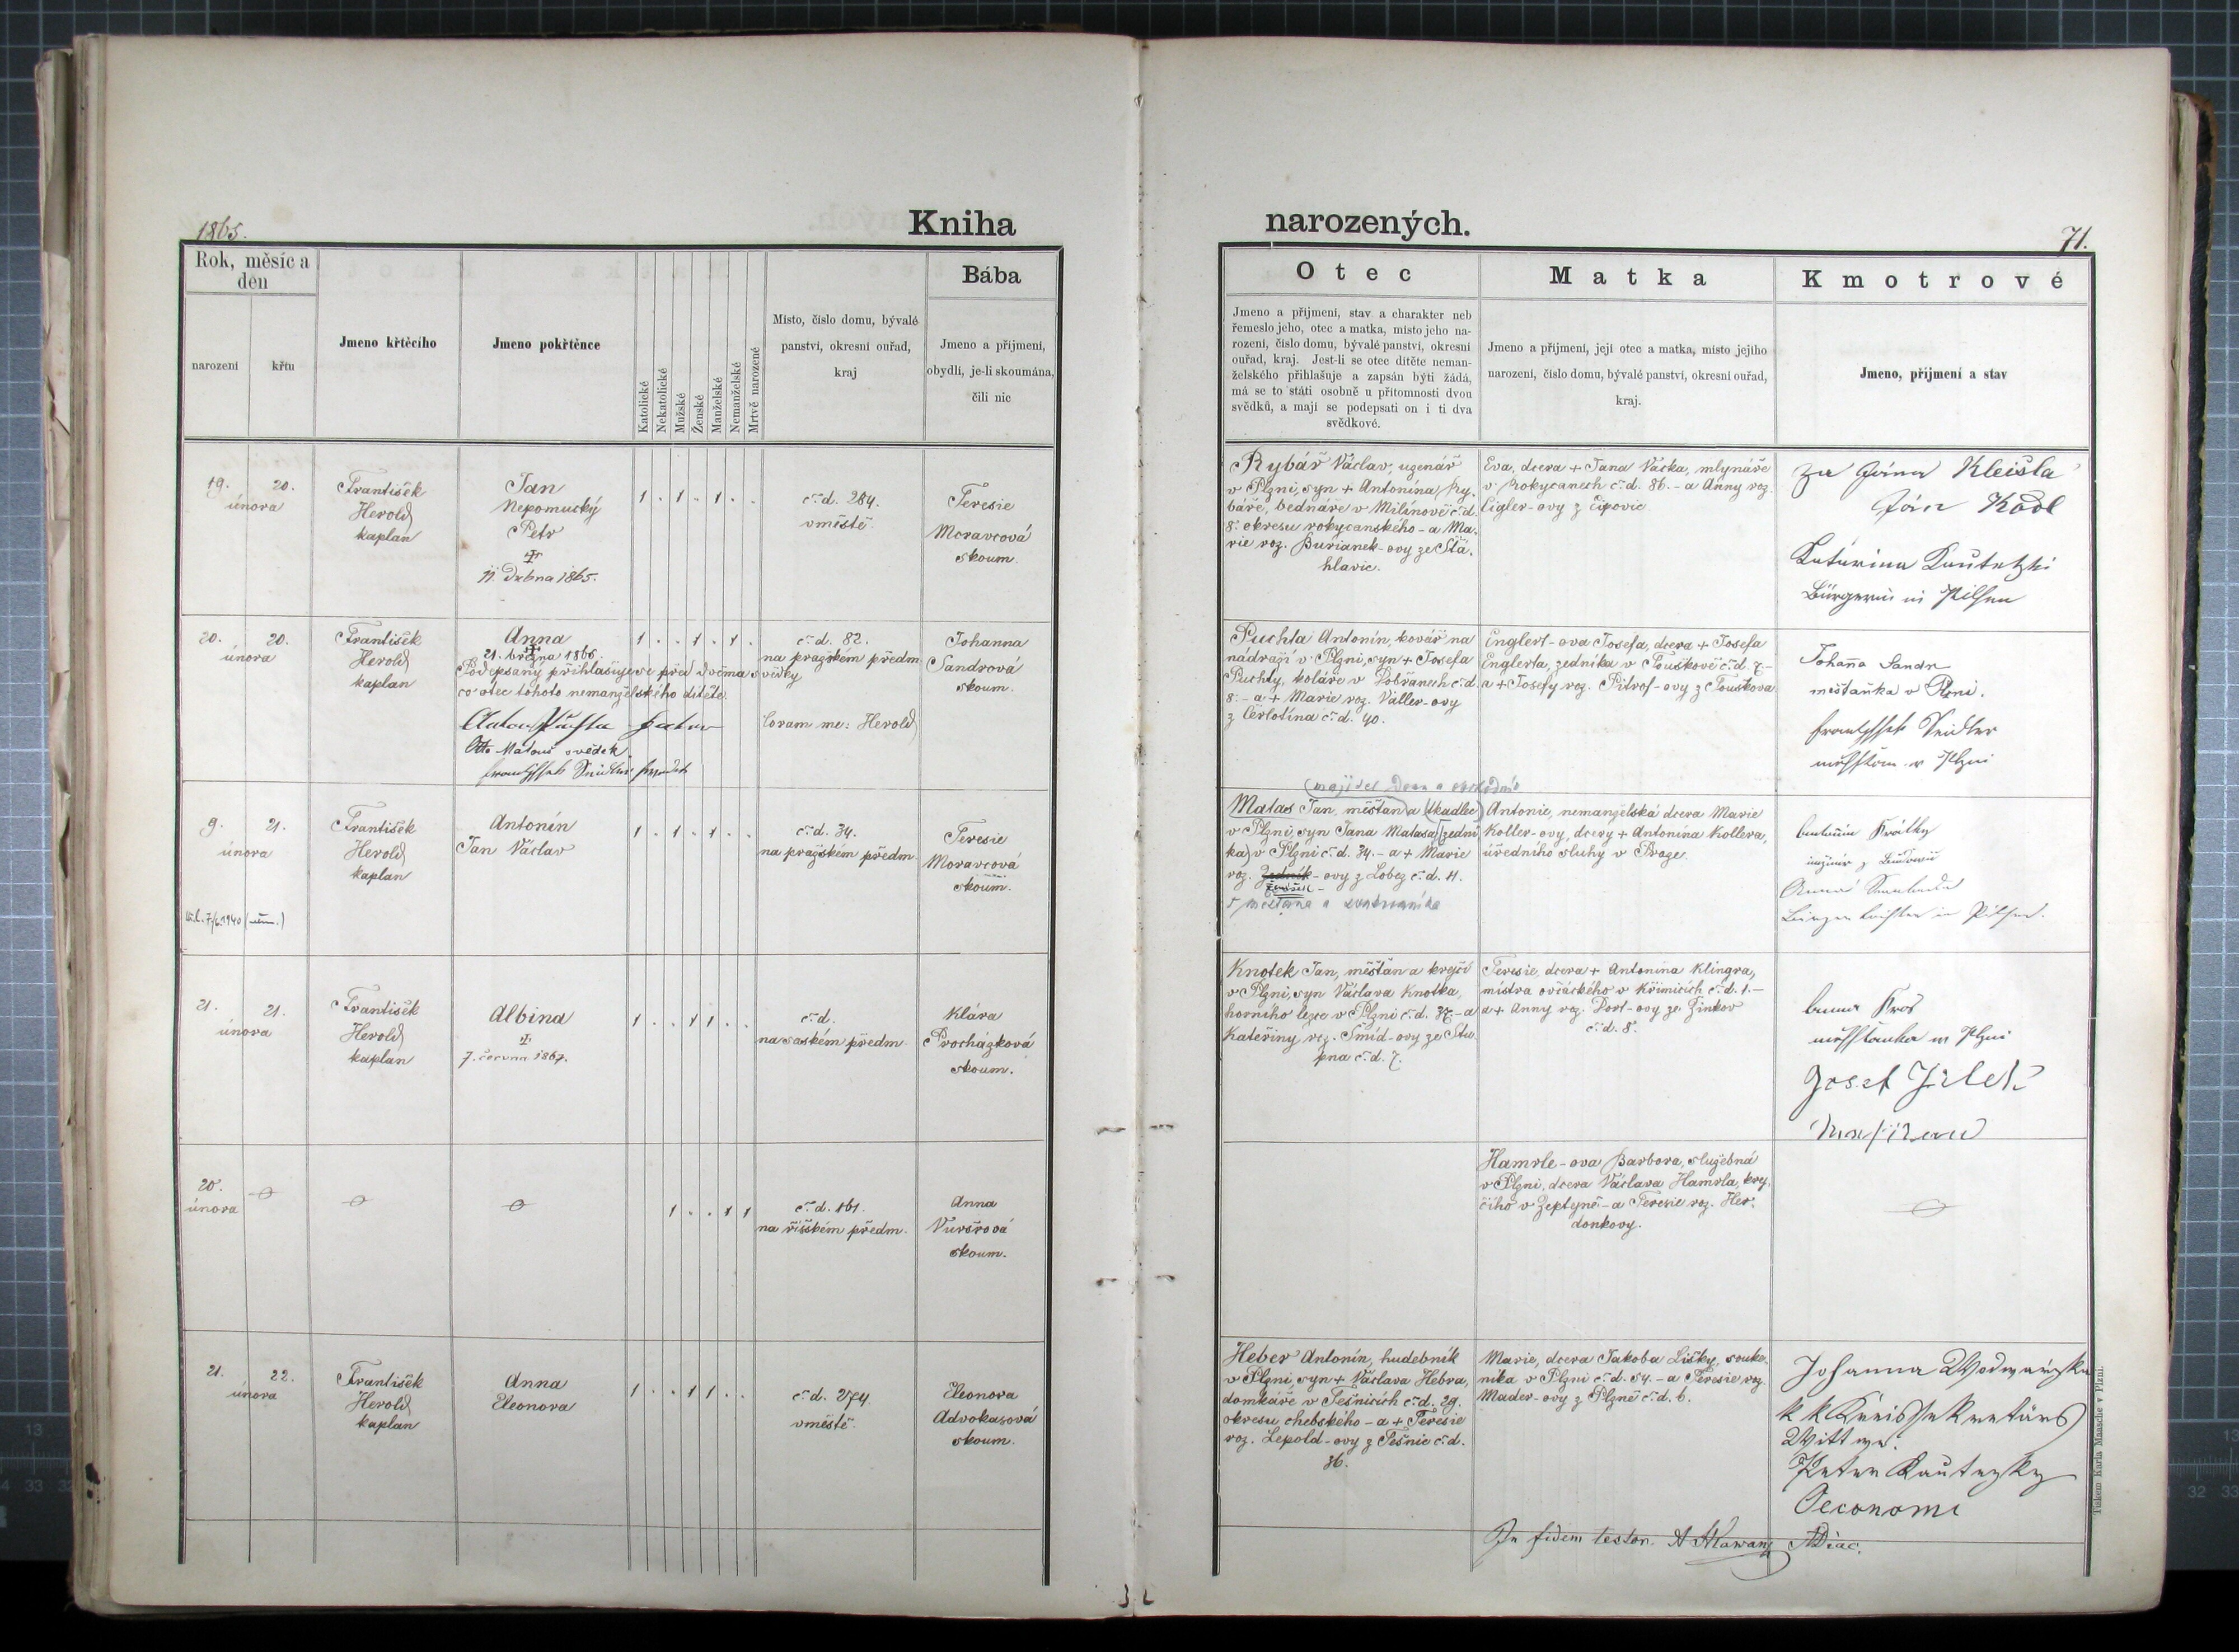 1865.
Kniha
narozených.
71.
Rok, měsíc a
den
narození
křtu
Jmeno křtěcího
Jmeno pokřtěnce
Katolické
Nekatolické
Mužské
Ženské
Manželské
Nemanželské
Mrtvě narozené
Místo, číslo domu, bývalé
panství, okresní ouřad,
kraj
Bába
Jmeno a příjmení,
obydlí, je-li skoumána,
čili nic
Otec
Jmeno a příjmení, stav a charakter neb
řemeslo jeho, otec a matka, místo jeho na-
rození, číslo domu, bývalé panství, okresní
ouřad, kraj. Jest-li se otec dítěte neman-
želského přihlašuje a zapsán býti žádá,
má se to státi osobně u přítomnosti dvou
svědků, a mají se podepsati on i ti dva
svědkové.
Matka
Jmeno a příjmení, její otec a matka, místo jejího
narození, číslo domu, bývalé panství, okresní ouřad,
kraj.
Kmotrové
Jmeno, příjmení a stav
19. 20.
února
František
Herold
kaplan
Jan
Nepomucký
Petr
11. Dubna 1865.
1 . 1 . 1 . .
č. d. 284.
v městě.
Teresie
Moravcová
skoum.
Rybář Václav, uzenář
v Plzni, syn + Antonína Ry-
báře, bednáře v Milínově č. d.
8. okresu rokycanského - a Ma-
rie roz. Burianek-ovy ze Stá-
hlavic.
Eva, dcera + Jana Vácka, mlynáře
v Rokycanech č. d. 86. - a Anny roz.
Cigler-ovy z Čipovic
za Jána Kleisla
Ján Kodl
Katarina Kautetzki
Bürgerin in Pilsen
20. 20.
února
František
Herold
kaplan
Anna
21. března 1866.
Podepsaný přihlašuje se před dvěma svědky
co otec tohoto nemanželského dítěte.
Anton Puchta
Otto Matouš svědek
Seidler
1 . . 1 . 1 .
č. d. 82.
na pražském předm.
Coram me: Herold
Johanna
Sandrová
skoum.
Puchta Antonín, kovář na
nádraží v Plzni, syn + Josefa
Puchty, koláře v Dobřanech č. d.
8. - a + Marie roz. Valler-ovy
z Čerlotína č. d. 40.
Englert-ova Josefa, dcera + Josefa
Englerta, zedníka v Touškově č. d. 7. -
a + Josefy roz. Pitrof-ovy z Touškova
Johana Sandr
městaňka v Plzni.
Seidler
v Plzni
9. 21.
února
František
Herold
kaplan
Antonín
Jan Václav
1 . 1 . 1 . .
č. d. 34.
na pražském předm.
Teresie
Moravcová
skoum.
(majitel domu a
Matas Jan, měšťan a (tkadlec)
v Plzni, syn Jana Matasa (zední-
ka) v Plzni č. d. 34. - a + Marie
roz. Zedník-ovy z Lobez č. d. 11.
měšťana a
Antonie, nemanželská dcera Marie
Koller-ovy, dcery + Antonína Kollera,
úředního sluhy v Praze.
Antonín Krátky
Anna
in Pilsen.
21. 21.
února
František
Herold
kaplan
Albina
7. června 1867.
1 . . 1 1 . .
č. d.
na saském předm.
Klára
Procházková
skoum.
Knotek Jan, měšťan a krejčí
v Plzni, syn Václava Knotka,
horního lezce v Plzni č. d. 37. - a
Kateřiny roz. Šmíd-ovy ze Stu-
pna č. d. 7.
Teresie, dcera + Antonína Klingra,
mistra ovčáckého v Křimicích č. d. 1. -
a + Anny roz. Dort-ovy ze Žinkov
č. d. 8.
Anna Kros
v Plzni
Josef Jílek
20.
února
1 . . 1 1
č. d. 161.
na říšském předm.
Anna
Vuršrová
skoum.
Hamrle-ova Barbora, služebná
v Plzni, dcera Václava Hamrla, krej-
čího v Zeptyně - a Teresie roz. Her-
donkovy.
21. 22.
února
František
Herold
kaplan
Anna
Eleonora
1 . . 1 1 . .
č. d. 274.
v městě.
Eleonora
Advokasová
skoum.
Heber Antonín, hudebník
v Plzni, syn + Václava Hebra,
domkáře v Tešnicích č. d. 29.
okresu chebského - a + Teresie
roz. Lepold-ovy z Tešnic č. d.
36.
Marie, dcera Jakoba Lišky, souke-
níka v Plzni č. d. 54. - a Teresie roz.
Mader-ovy z Plzně č. d. 6.
Johanna Wodwarzka
k k Kreissekretärs
Wittwe.
Peter Kautezky
Oeconom
In fidem testor. A Hlawan
Tiskem Karla Maasche v Plzni.